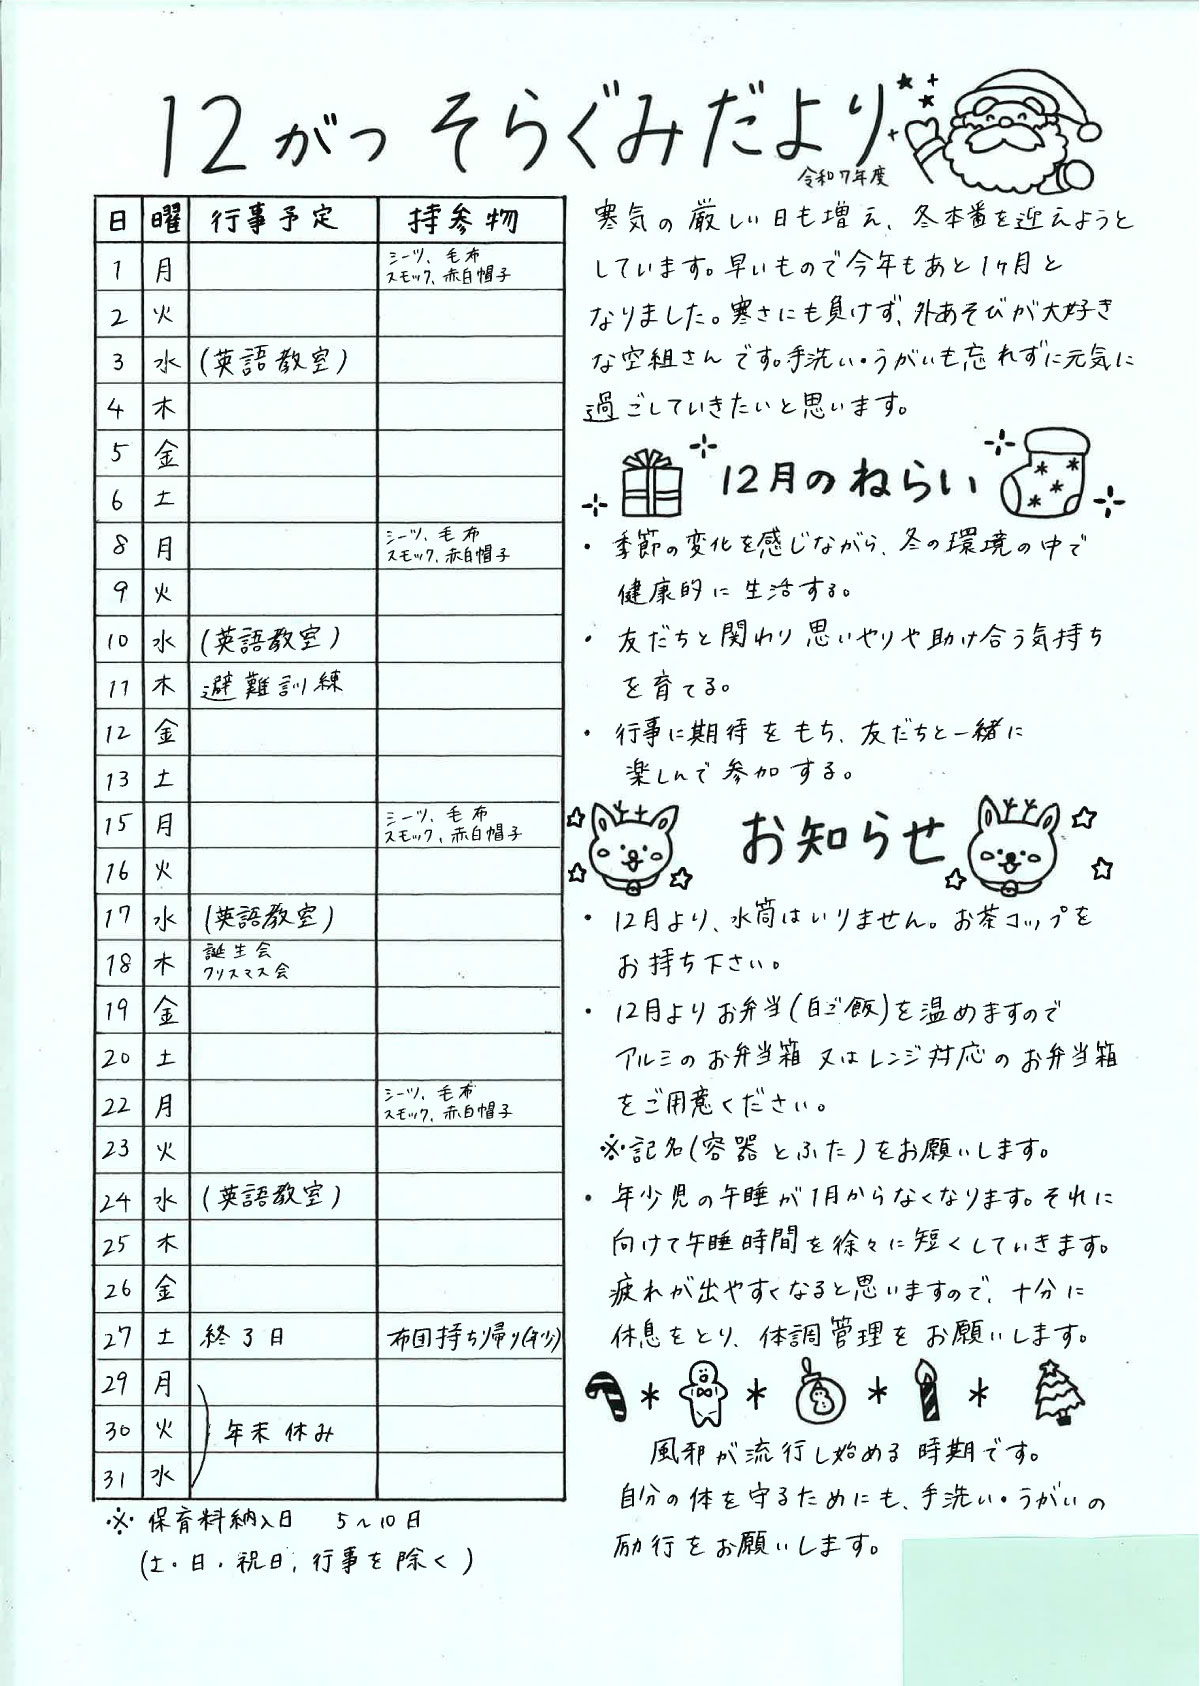 12がつ そらぐみだより
令和7年度
日 曜 行事予定 持参物
1 月 シーツ、毛布
スモック、赤白帽子
2 火
3 水 (英語教室)
4 木
5 金
6 土
8 月 シーツ、毛布
スモック、赤白帽子
9 火
10 水 (英語教室)
11 木 避難訓練
12 金
13 土
15 月 シーツ、毛布
スモック、赤白帽子
16 火
17 水 (英語教室)
18 木 誕生会
クリスマス会
19 金
20 土
22 月 シーツ、毛布
スモック、赤白帽子
23 火
24 水 (英語教室)
25 木
26 金
27 土 終了日 布団持ち帰り(年少)
29 月
30 火 年末休み
31 水
※ 保育料納入日 5~10日
(土・日・祝日、行事を除く)
寒気の厳しい日も増え、冬本番を迎えようと
しています。早いもので今年もあと1ヶ月と
なりました。寒さにも負けず、外あそびが大好き
な空組さんです。手洗い・うがいも忘れずに元気に
過ごしていきたいと思います。
12月のねらい
・ 季節の変化を感じながら、冬の環境の中で
健康的に生活する。
・ 友だちと関わり思いやりや助け合う気持ち
を育てる。
・ 行事に期待をもち、友だちと一緒に
楽しんで参加する。
お知らせ
・ 12月より、水筒はいりません。お茶コップを
お持ち下さい。
・ 12月よりお弁当(白ご飯)を温めますので
アルミのお弁当箱又はレンジ対応のお弁当箱
をご用意ください。
※記名(容器とふた)をお願いします。
・ 年少児の午睡が1月からなくなります。それに
向けて午睡時間を徐々に短くしていきます。
疲れが出やすくなると思いますので、十分に
休息をとり、体調管理をお願いします。
風邪が流行し始める時期です。
自分の体を守るためにも、手洗い・うがいの
励行をお願いします。